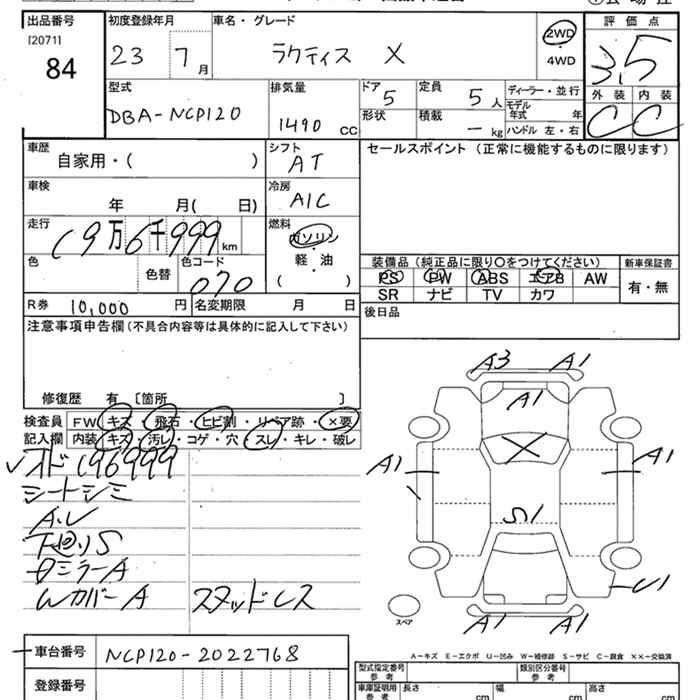 出品番号 初度登録年月 車名・グレード 評価点
[2071]
84 23 7月 ラクティス X 2WD ・ 4WD 3.5
外装 内装
C C
型式 排気量 ドア 定員 ディーラー・並行
DBA-NCP120 1490 CC 5 5人 モデル年式 年
形状 積載 -kg ハンドル 左・右
車歴 シフト セールスポイント (正常に機能するものに限ります)
自家用・( ) AT
車検 冷房
年 月( 日) A/C
走行 燃料
19万6千999km ガソリン・軽・油
( )
装備品(純正品に限り○をつけてください) 新車保証書
PS PW ABS エアB AW 有・無
SR ナビ TV カワ
色 色替 色コード
070
R券 10,000円 名変期限 月 日
後日品
注意事項申告欄(不具合内容等は具体的に記入して下さい)
修復歴 有 [箇所 ]
検査員 FW キズ・飛石・ヒビ割・リペア跡・×要
記入欄 内装 キズ・汚レ・コゲ・穴・スレ・キレ・破レ
オド196999
シートシミ
A.U
下廻りS
DミラーA
WカバーA スタッドレス
A3 A1
A1
X
A1 A1
S1
U1
A1 A1
スペア
A-キズ E-エクボ U-凹み W-補修跡 S-サビ C-腐食 ××-交換済
車台番号 NCP120-2022768
登録番号
型式指定番号 参考 類別区分番号 参考
車庫証明用 参考 長さ cm 幅 cm 高さ cm